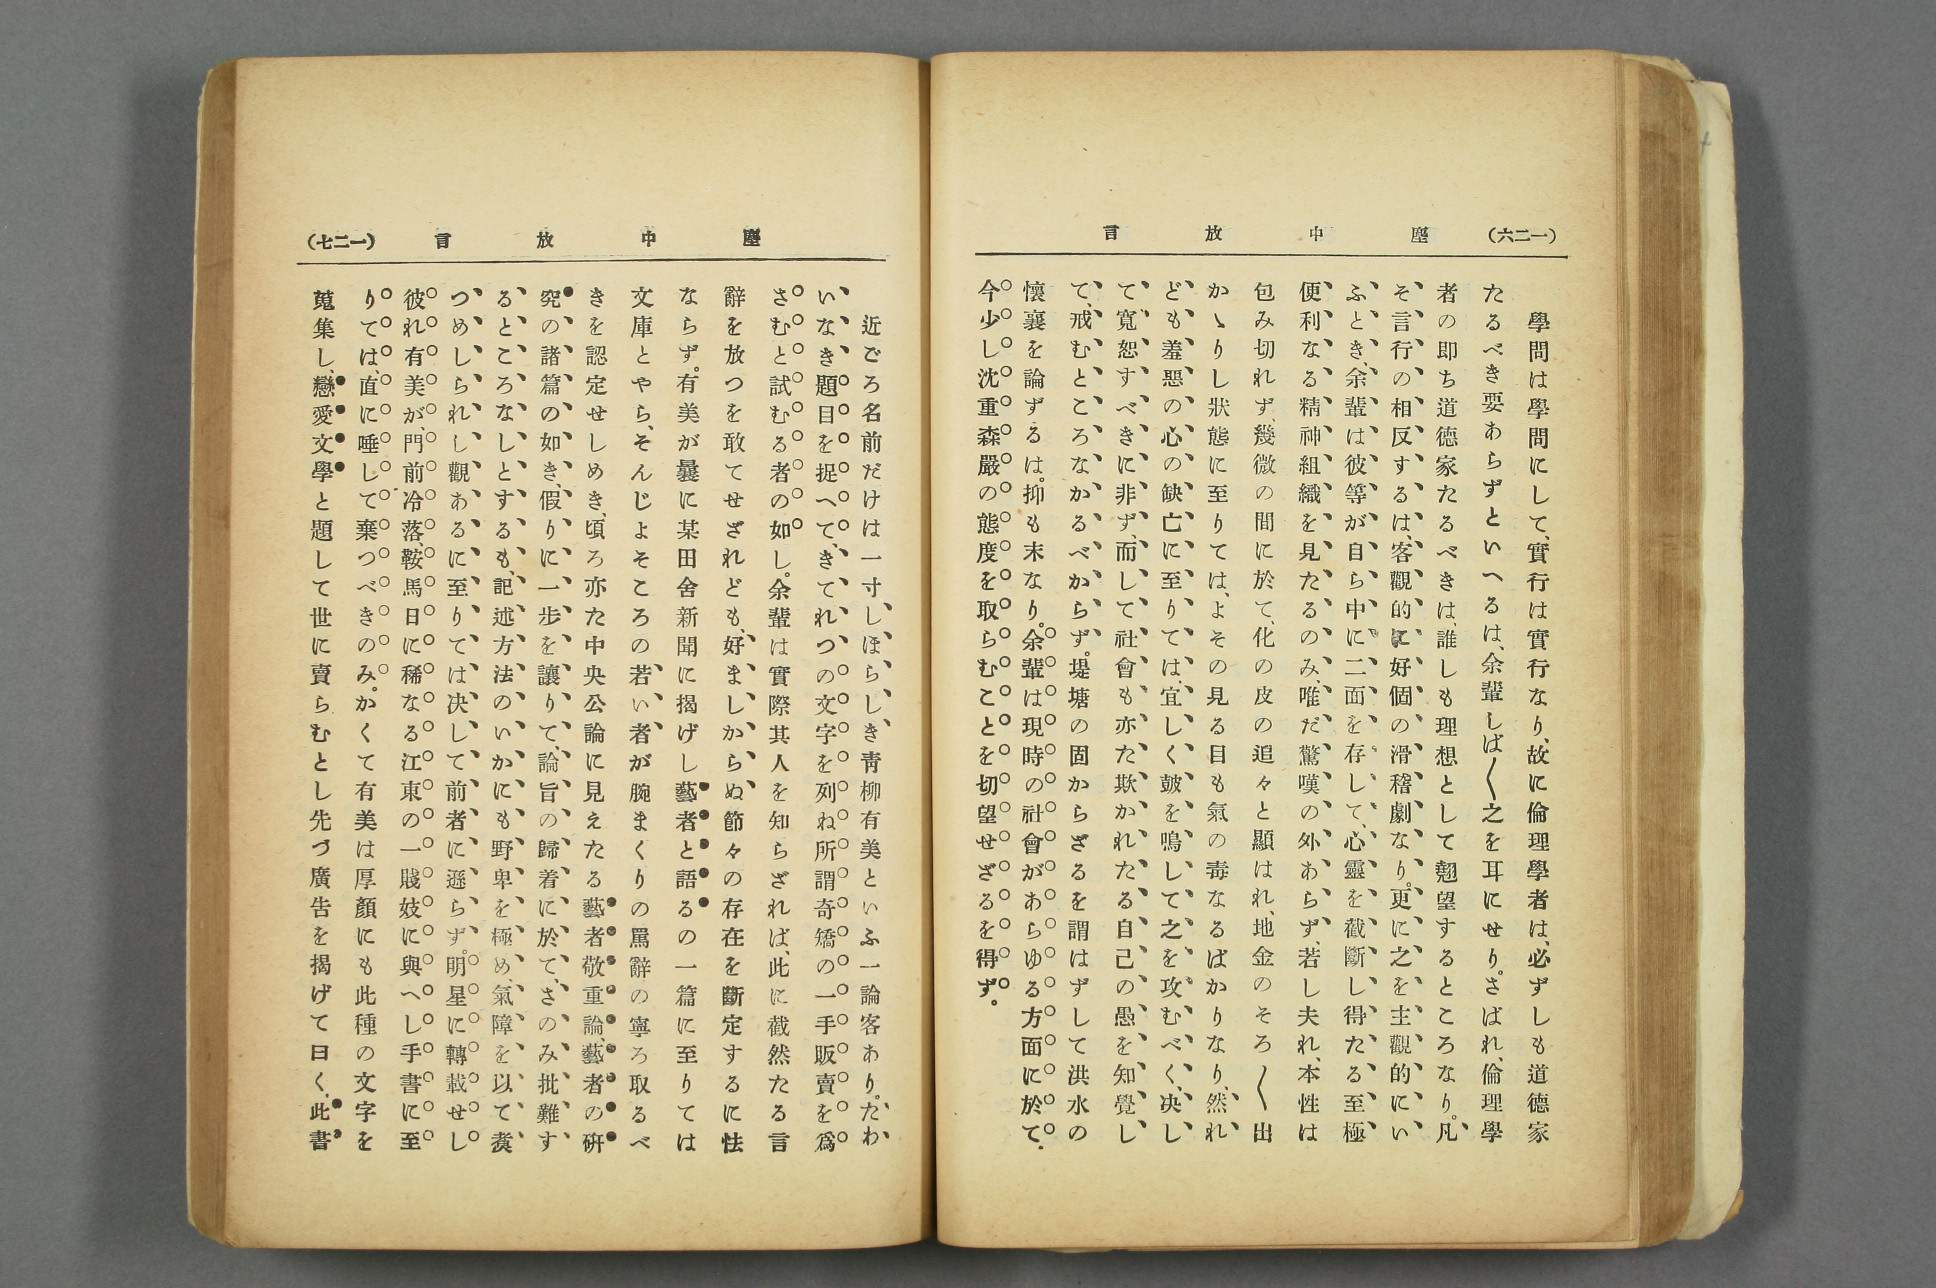 (一二六) 塵中放言
學問は學問にして、實行は實行なり、故に倫理學者は、必ずしも道德家
たるべき要あらずといへるは、余輩しば〱之を耳にせり。さばれ、倫理學
者の即ち道德家たるべきは、誰しも理想として翹望するところなり。凡
そ言行の相反するは、客觀的に好個の滑稽劇なり。更に之を主觀的にい
ふとき、余輩は彼等が自ら中に二面を存して、心靈を截斷し得たる至極
便利なる精神組織を見たるのみ、唯だ驚嘆の外あらず、若し夫れ、本性は
包み切れず、幾微の間に於て、化の皮の追々と顯はれ、地金のそろ〱出
かゝりし狀態に至りては、よその見る目も氣の毒なるばかりなり、然れ
ども羞惡の心の缺亡に至りては、宜しく皷を鳴して之を攻むべく、决し
て寬恕すべきに非ず、而して社會も亦た欺かれたる自己の愚を知覺し
て、戒むところなかるべからず。堤塘の固からざるを謂はずして洪水の
懷襄を論ずるは。抑も末なり。余輩は現時の社會があらゆる方面に於て、
今少し沈重森嚴の態度を取らむことを切望せざるを得ず。
塵中放言 (一二七)
近ごろ名前だけは一寸しほらしき靑柳有美といふ一論客あり。たわ
いなき題目を捉へて、きてれつの文字を列ね所謂奇矯の一手販賣を爲
さむと試むる者の如し。余輩は實際其人を知らざれば、此に截然たる言
辭を放つを敢てせざれども、好ましからぬ節々の存在を斷定するに怯
ならず。有美が曩に某田舍新聞に揭げし藝者と語るの一篇に至りては
文庫とやら、そんじよそころの若い者が腕まくりの罵辭の寧ろ取るべ
きを認定せしめき、頃ろ亦た中央公論に見えたる藝者敬重論、藝者の研
究の諸篇の如き、假りに一步を讓りて、論旨の歸着に於て、さのみ批難す
るところなしとするも、記述方法のいかにも野卑を極め、氣障を以て煑
つめしられし觀あるに至りては决して前者に遜らず。明星に轉載せし
彼れ有美が、門前冷落、鞍馬日に稀なる江東の一賤妓に與へし手書に至
りては、直に唾して棄つべきのみ。かくて有美は厚顏にも此種の文字を
蒐集し、戀愛文學と題して世に賣らむとし先づ廣告を揭げて曰く、此書